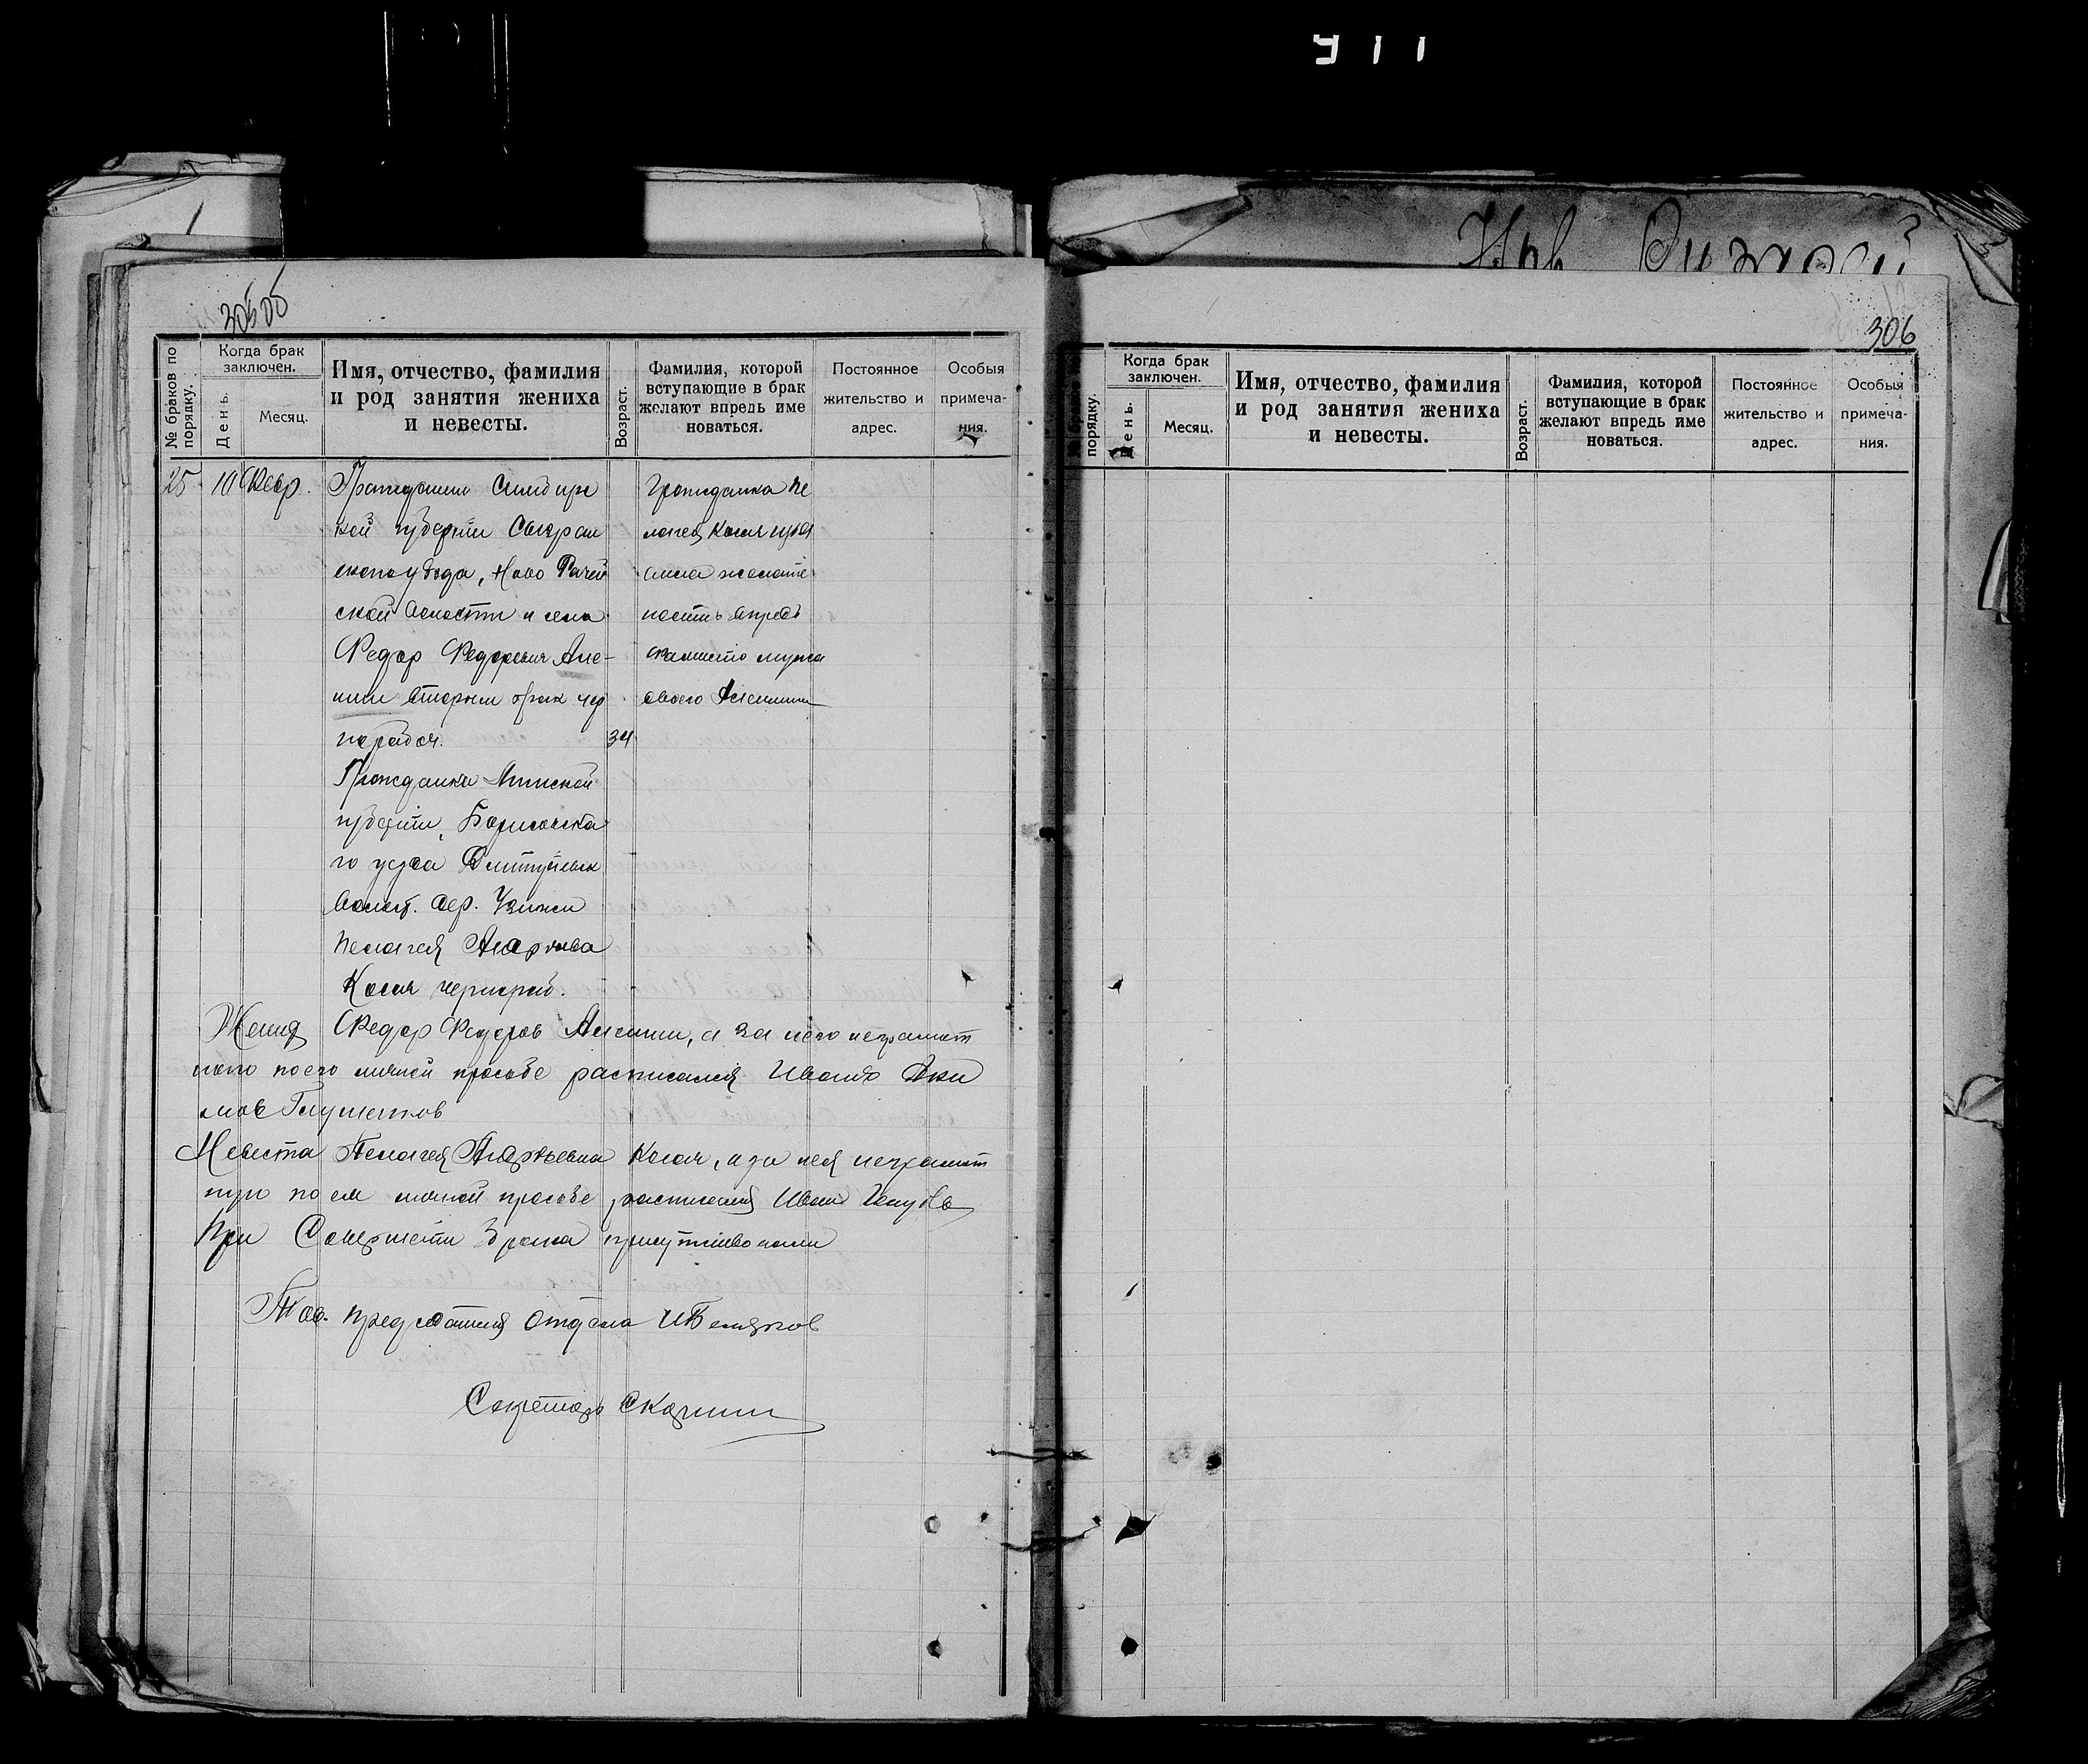 911
305об
№ браков по порядку.
Когда брак заключен.
День.
Месяц.
Имя, отчество, фамилия
и род занятия жениха
и невесты.
Возраст.
Фамилия, которой
вступающие в брак
желают впредь име
новаться.
Постоянное
жительство и
адрес.
Особыя
примеча-
ния.
25 10 Февр.
Гражданин Симбирс
кой губернии Сызран
скаго уѣзда, Ново Рачей
ской волости и села
Федор Федорович
вторым брак чер
норабоч. 34
Гражданка Минской
губернии, Борисовска
го уезда
Волост. дер.
Пелагея
чернораб.
Гражданка Пе
лагея
свою
впредь
фамилию мужа
своего
Жених Федор Федоров а за него неграмот
наго по его личной просьбе расписался Иван Аки
мов
Невеста Пелагея а за нея неграмот
ную по ея личной просьбе расписался Иван
При Совершении Брака присутствовали
Тов. председателя отдела И Беляков
Секретарь
306
№ браков по порядку.
Когда брак
заключен.
День.
Месяц.
Имя, отчество, фамилия
и род занятия жениха
и невесты.
Возраст.
Фамилия, которой
вступающие в брак
желают впредь име
новаться.
Постоянное
жительство и
адрес.
Особыя
примеча-
ния.